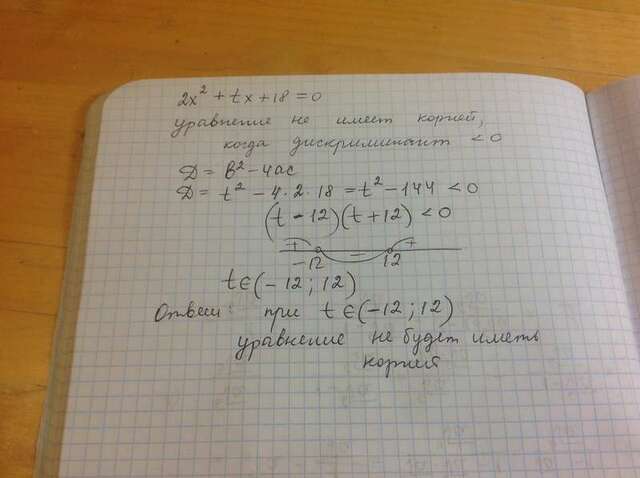 2x² + tx + 18 = 0
уравнение не имеет корней,
когда дискриминант < 0
D = b² - 4ac
D = t² - 4·2·18 = t² - 144 < 0
(t - 12)(t + 12) < 0
+ - +
-12 12
t ∈ (-12; 12)
Ответ: при t ∈ (-12; 12)
уравнение не будет иметь
корней